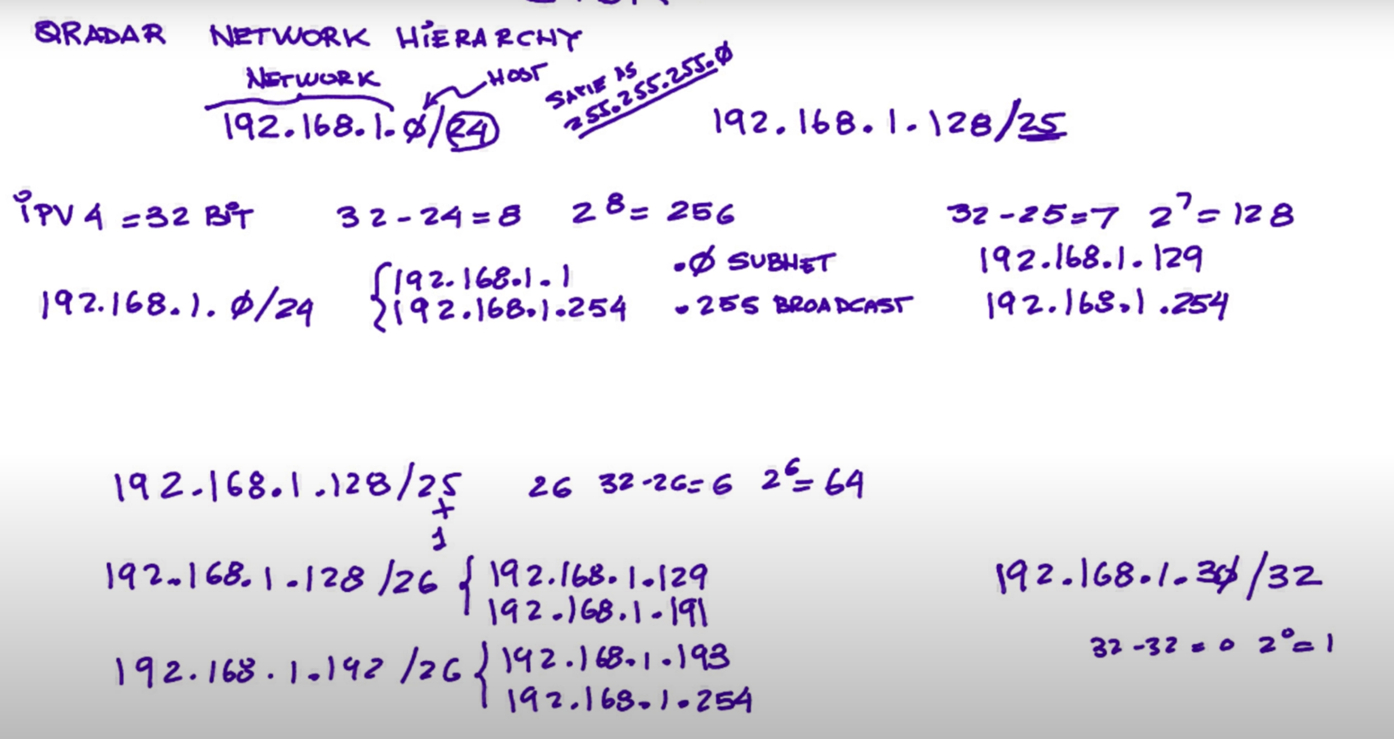 QRADAR NETWORK HIERARCHY
NETWORK
HOST
SAME AS
255.255.255.0
192.168.1.0/24
192.168.1.128/25
IPV4 = 32 BIT
32-24=8 2^8= 256
32-25=7 2^7=128
192.168.1.0/24
{192.168.1.1
192.168.1.254
.0 SUBNET
.255 BROADCAST
192.168.1.129
192.168.1.254
192.168.1.128/25
+
1
26 32-26=6 2^6=64
192.168.1.128/26 {192.168.1.129
192.168.1.191
192.168.1.192/26 {192.168.1.193
192.168.1.254
192.168.1.30/32
32-32=0 2^0=1